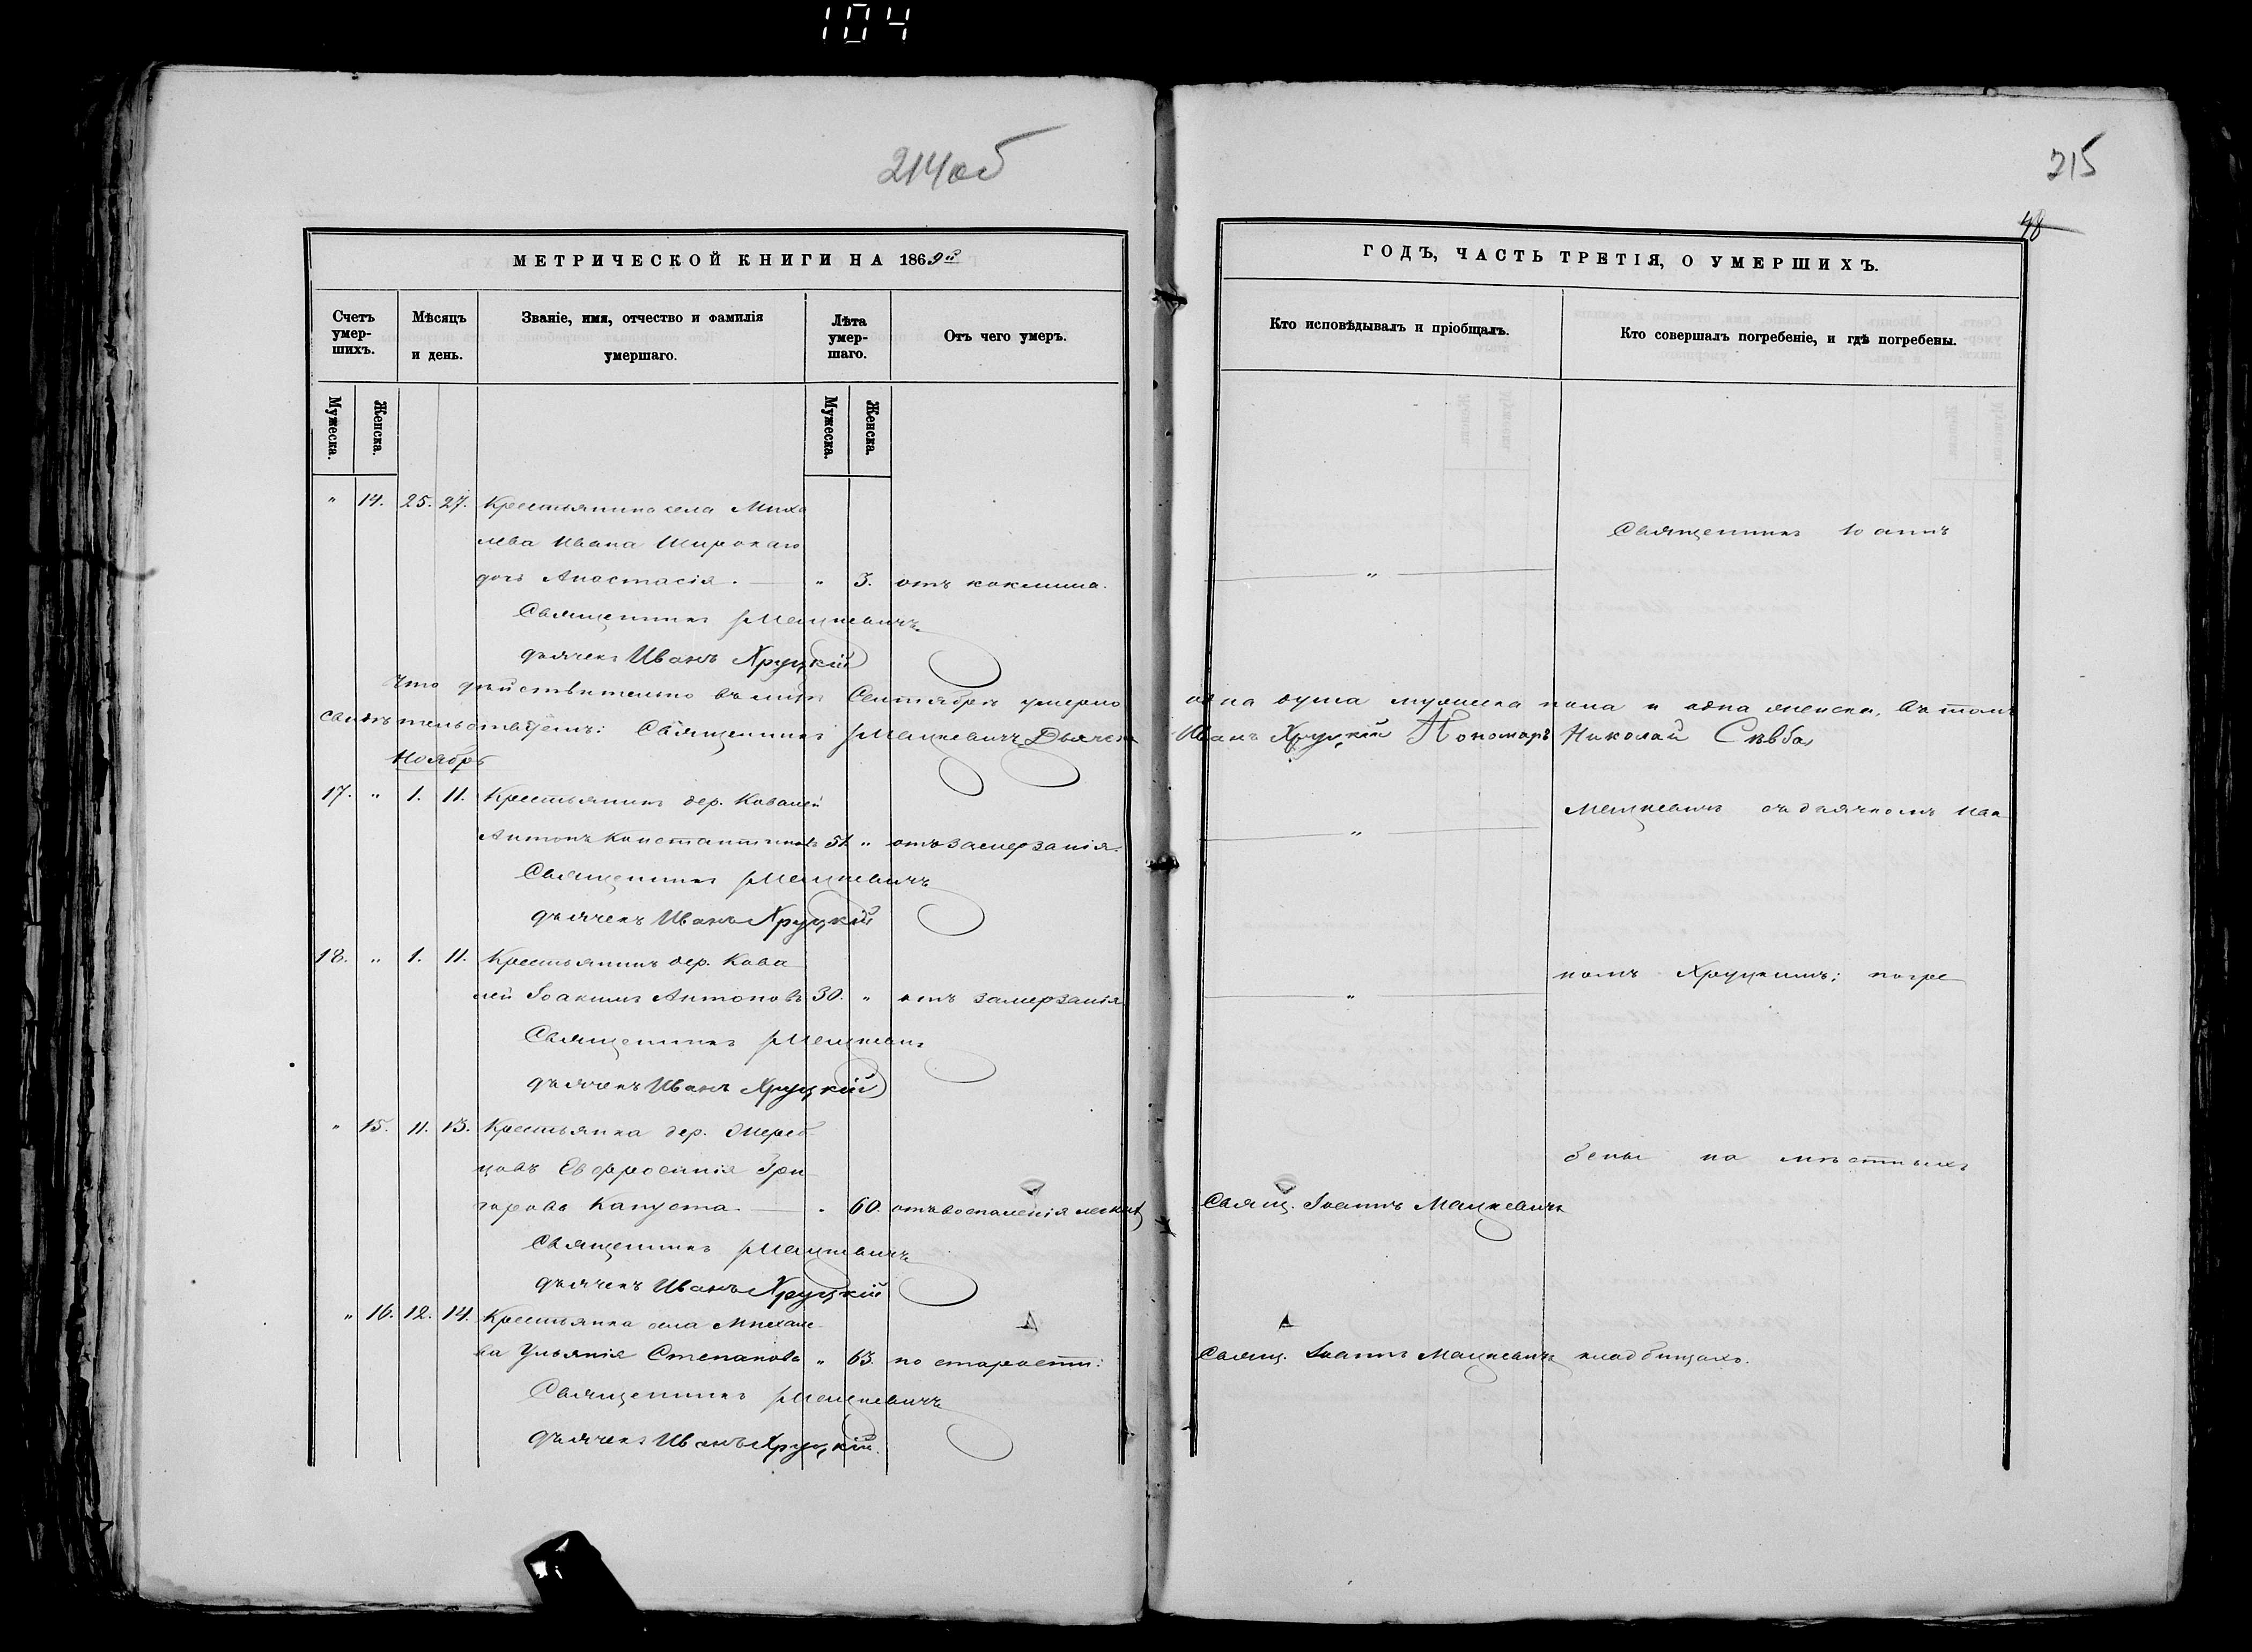 104
214об
МЕТРИЧЕСКОЙ КНИГИ НА 1869й
Счетъ умер-шихъ.
Мѣсяцъ и день.
Званіе, имя, отчество и фамилія умершаго.
Лѣта умер-шаго.
Отъ чего умеръ.
Мужеска.
Женска.
Мужеска.
Женска.
" 14. 25. 27. Крестьянина села Миха
лева Ивана Широкаго
дочь Анастасія. — " 3. отъ коклюша.
Священникъ Мацкевичъ
дьячекъ Иванъ Хруцкій
Что дѣйствительно въ Сентябрѣ умерло
свидѣтельствуемъ: Священникъ Мацкевичъ Дьячекъ
Ноябрь
17. " 1. 11. Крестьянинъ дер. Ковалей
Антонъ Константиновъ 51. " отъ замерзанія.
Священникъ Мацкевичъ
дьячекъ Иванъ Хруцкій
18. " 1. 11. Крестьянинъ дер. Кова
лей Іоакимъ Антоновъ 30. " отъ замерзанія
Священникъ Мацкевичъ
дьячекъ Иванъ Хруцкій
" 15. 11. 13. Крестьянка дер. Жереб
цовъ Евфросинія Гри
горова Капуста. — " 60. отъ воспаленія легкихъ
Священникъ Мацкевичъ
дьячекъ Иванъ Хруцкій
" 16. 12. 14. Крестьянка села Михале
ва Ульянія Степанова " 63. по старости:
Священникъ Мацкевичъ
дьячекъ Иванъ Хруцкій.
215
48
ГОДЪ, ЧАСТЬ ТРЕТІЯ, О УМЕРШИХЪ.
Кто исповѣдывалъ и пріобщалъ.
Кто совершалъ погребеніе, и гдѣ погребены.
Священникъ Іоаннъ
"
одна душа мужеска пола и одна женска, въ томъ
Иванъ Хруцкій Пономарь Николай
Мацкевичъ съ дьячкомъ Ива
"
номъ Хруцкимъ; погре
"
бены на мѣстныхъ
Свящ. Іоаннъ Мацкевичъ
Свящ. Іоаннъ Мацкевичъ кладбищахъ.